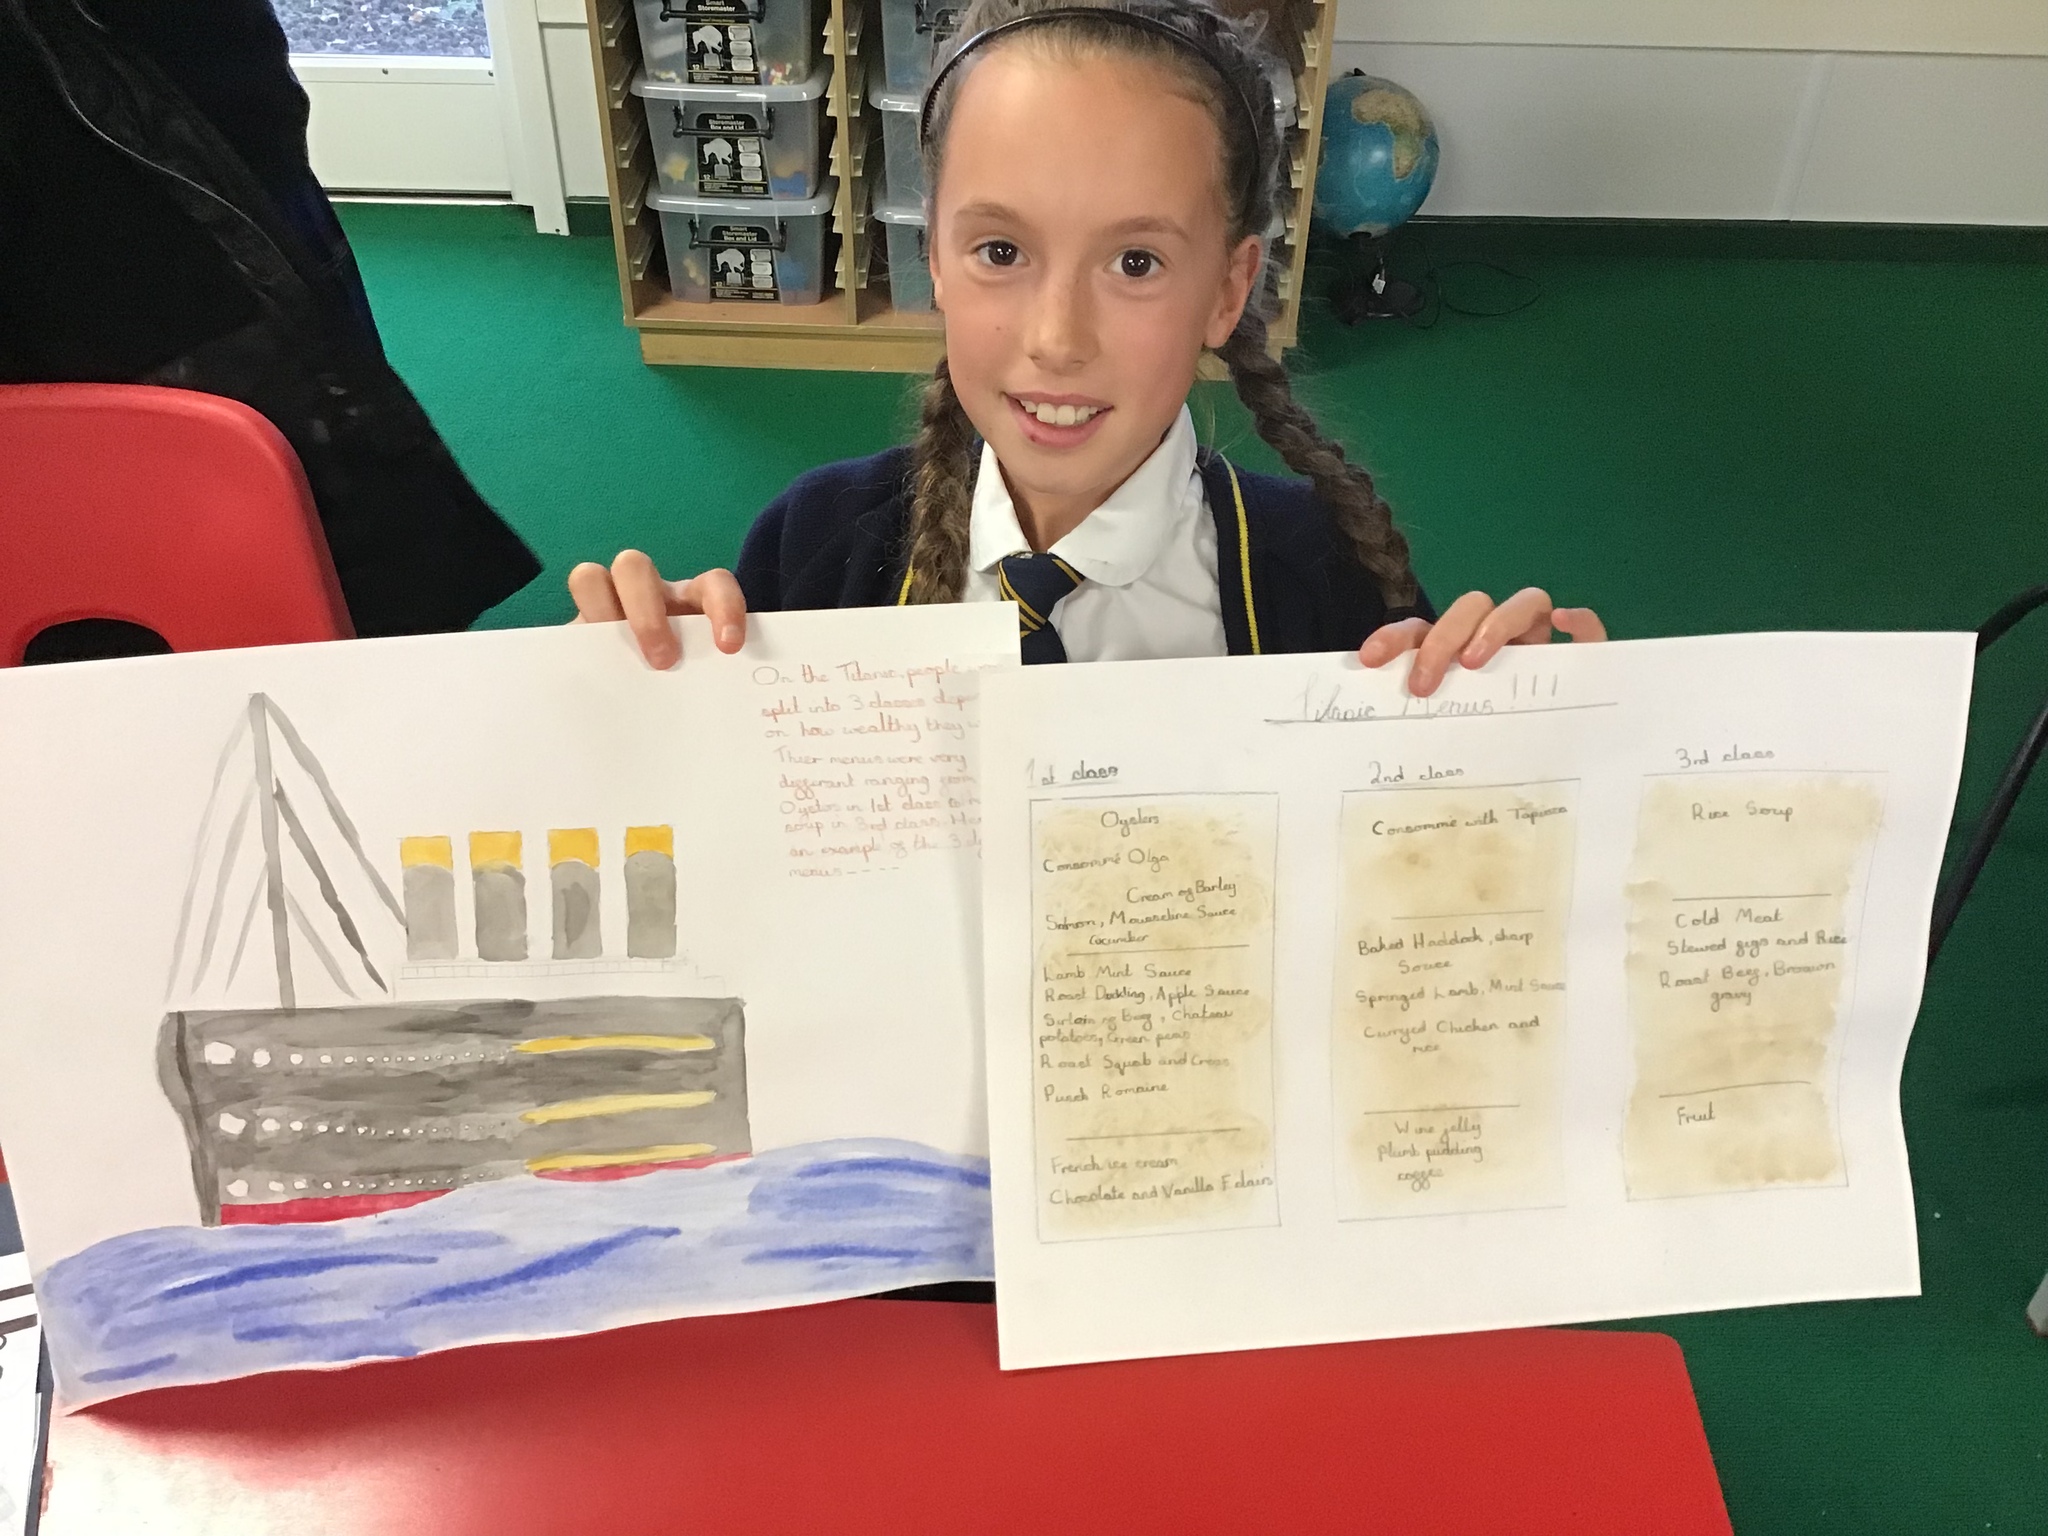 Smart
Storemaster
Box and Lid
12
Smart
Storemaster
Box and Lid
12
Smart
Storemaster
Box and Lid
12
On the Titanic, people
split into 3 classes
on how wealthy they
Thier menus were very
different ranging from
Oysters in 1st class
soup in 3rd class.
an example of the 3
menus----
Titanic Menus!!!
1st class
Oysters
Consommé Olga
Cream of Barley
Salmon, Mousseline Sauce
Cucumber
Lamb Mint Sauce
Roast Duckling, Apple Sauce
Sirloin of Beef, Chateau
potatoes, Green peas
Roast Squab and Cress
Punch Romaine
French ice cream
Chocolate and Vanilla Eclairs
2nd class
Consommé with Tapioca
Baked Haddock, sharp
Sauce
Springed Lamb, Mint Sauce
Curryed Chicken and
rice
Wine jelly
Plumb pudding
coffee
3rd class
Rice Soup
Cold Meat
Stewed figs and Rice
Roast Beef, Brown
gravy
Fruit